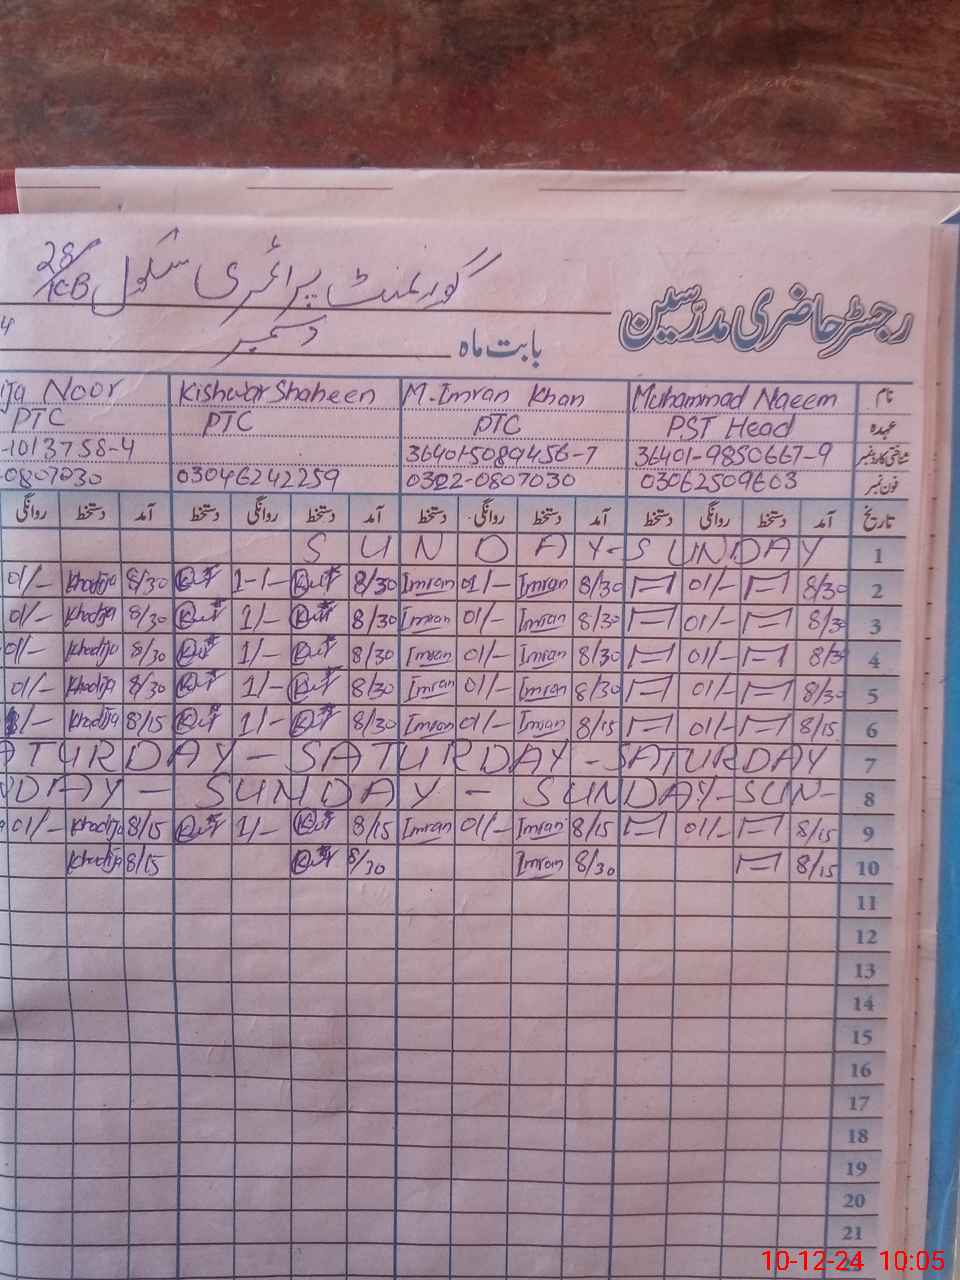 گورنمنٹ پرائمری سکول 28/KB
رجسٹر حاضری مدرسین
بابت ماہ دسمبر 4
نام Muhammad Naeem M. Imran Khan Kishwar Shaheen ija Noor
عہدہ PST Head PTC PTC PTC
شناختی کارڈ نمبر 36401-9850667-9 36401-5089456-7 -1013758-4
فون نمبر 03062509603 0302-0807030 03046242259 -0807030
تاریخ آمد دستخط روانگی دستخط آمد دستخط روانگی دستخط آمد دستخط روانگی دستخط آمد دستخط روانگی
SUNDAY-SUNDAY 1
01/- Khadija 8/30 1-/- 8/30 Imran 01/- Imran 8/30 01/- 8/30 2
01/- Khadija 8/30 1/- 8/30 Imran 01/- Imran 8/30 01/- 8/30 3
01/- Khadija 8/30 1/- 8/30 Imran 01/- Imran 8/30 01/- 8/30 4
01/- Khadija 8/30 1/- 8/30 Imran 01/- Imran 8/30 01/- 8/30 5
/- Khadija 8/15 1/- 8/30 Imran 01/- Imran 8/15 01/- 8/15 6
ATURDAY - SATURDAY - SATURDAY 7
DAY - SUNDAY - SUNDAY-SUN- 8
01/- Khadija 8/15 1/- 8/15 Imran 01/- Imran 8/15 01/- 8/15 9
Khadija 8/15 8/30 Imran 8/30 8/15 10
11
12
13
14
15
16
17
18
19
20
21
10-12-24 10:05